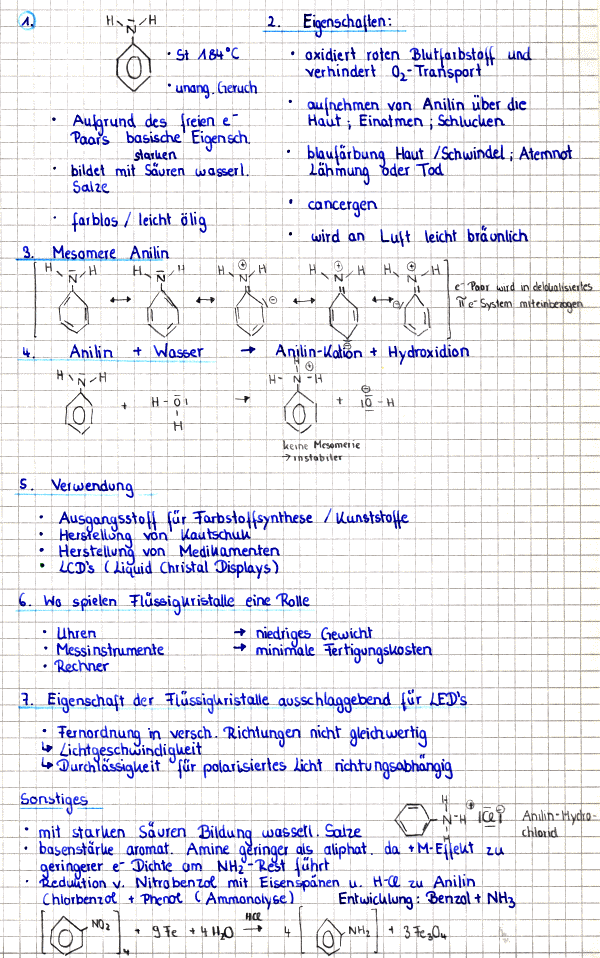 1.
H N H
• St 184°C
• unang. Geruch
• Aufgrund des freien e⁻
Paars basische Eigensch.
starken
• bildet mit Säuren wasserl.
Salze
• farblos / leicht ölig
2. Eigenschaften:
• oxidiert roten Blutfarbstoff und
verhindert O₂-Transport
• aufnehmen von Anilin über die
Haut ; Einatmen ; Schlucken
• blaufärbung Haut / Schwindel ; Atemnot
Lähmung oder Tod
• cancergen
• wird an Luft leicht bräunlich
3. Mesomere Anilin
H N H ↔ H N H ↔ H N⊕ H ⊖ ↔ H N⊕ H ⊖ ↔ H N⊕ H ⊖
e⁻ Paar wird in delokalisiertes
π e⁻ System miteinbezogen
4. Anilin + Wasser → Anilin-Kation + Hydroxidion
H N H + H - O - H → H - N⊕ - H H + ⊖ O - H
keine Mesomerie
→ instabiler
5. Verwendung
• Ausgangsstoff für Farbstoffsynthese / Kunststoffe
• Herstellung von Kautschuk
• Herstellung von Medikamenten
• LCD's (Liquid Christal Displays)
6. Wo spielen Flüssigkristalle eine Rolle
• Uhren → niedriges Gewicht
• Messinstrumente → minimale Fertigungskosten
• Rechner
7. Eigenschaft der Flüssigkristalle ausschlaggebend für LED's
• Fernordnung in versch. Richtungen nicht gleichwertig
↳ Lichtgeschwindigkeit
↳ Durchlässigkeit für polarisiertes Licht richtungsabhängig
Sonstiges
H N⊕ - H H Cl⊖ Anilin-Hydro-
chlorid
• mit starken Säuren Bildung wasserl. Salze
• basenstärke aromat. Amine geringer als aliphat. da +M-Effekt zu
geringerer e⁻ Dichte am NH₂-Rest führt
• Reduktion v. Nitrobenzol mit Eisenspänen u. H-Cl zu Anilin
Chlorbenzol + Phenol (Ammonolyse) Entwicklung: Benzol + NH₃
[ NO₂ ]₄ + 9 Fe + 4 H₂O HCl → 4 [ NH₂ ] + 3 Fe₃O₄